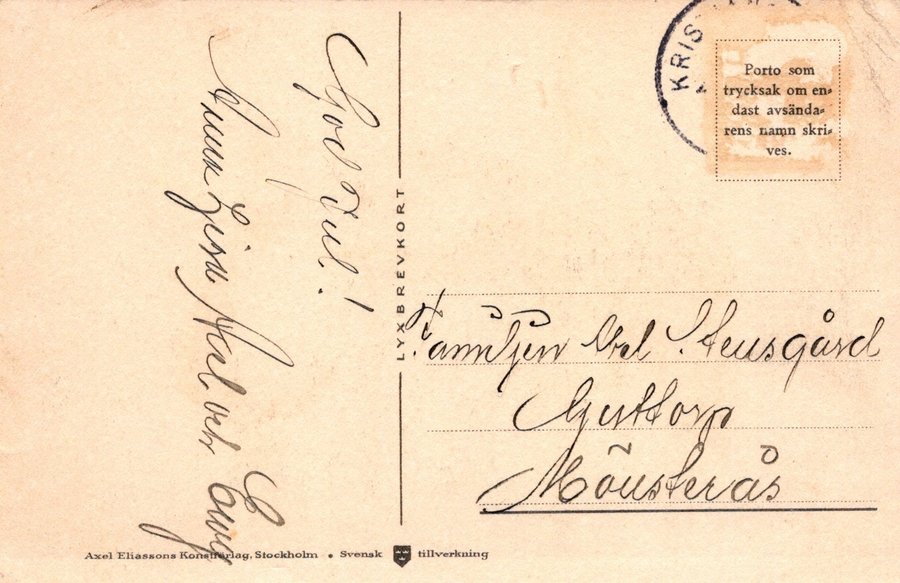 God Jul!
Anna Lisa Axel och
LYXBREVKORT
KRIS
Porto som
trycksak om en-
dast avsända-
rens namn skri-
ves.
Familjen Axel Stensgård
Gyttorp
Mönsterås
Axel Eliassons Konstförlag, Stockholm • Svensk tillverkning